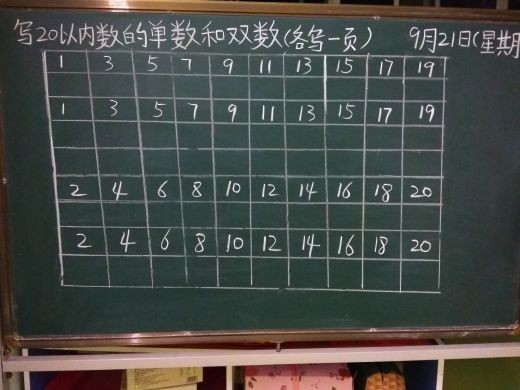 写20以内数的单数和双数(各写一页) 9月21日(星期
1 3 5 7 9 11 13 15 17 19
1 3 5 7 9 11 13 15 17 19
2 4 6 8 10 12 14 16 18 20
2 4 6 8 10 12 14 16 18 20